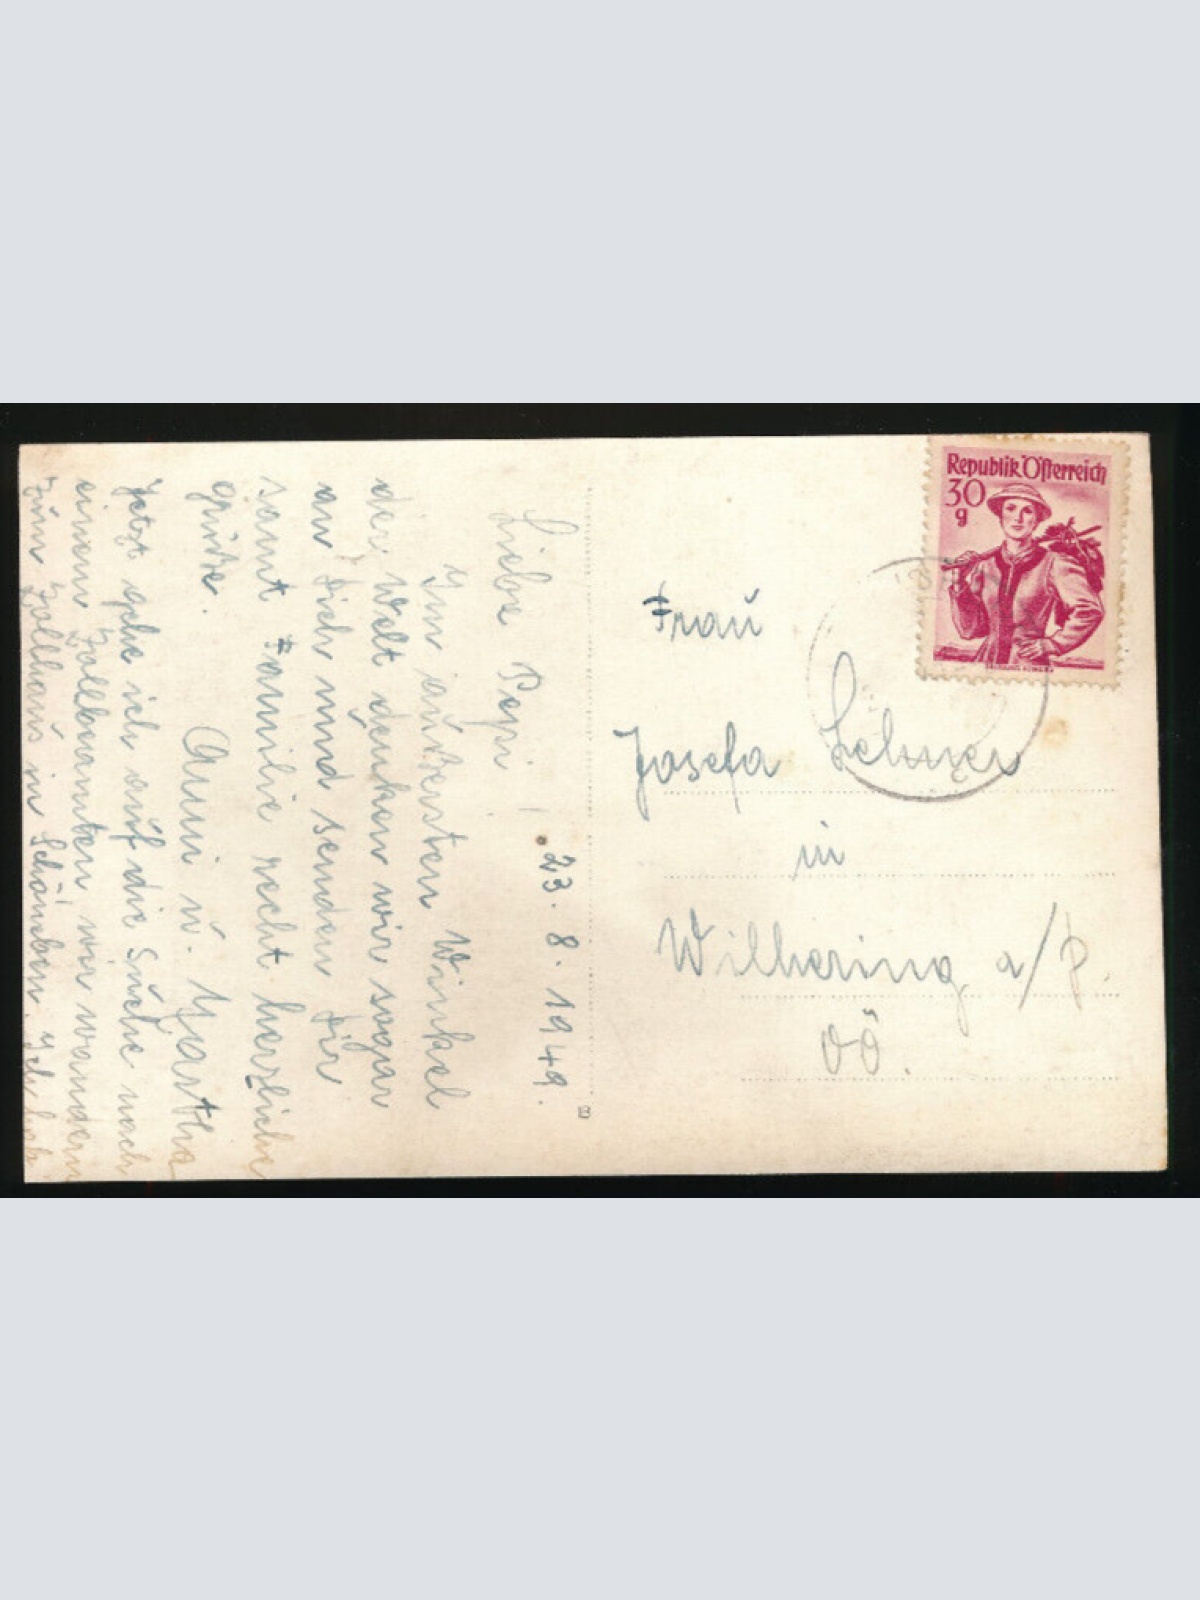 23. 8. 1949.
Liebe Pepi!
Im äußersten Winkel
der Welt denken wir sogar
an Dich und senden Dir
samt Familie recht herzliche
Grüße.
Anni u. Martha
Jetzt gehe ich auf die Suche nach
einem Zollbeamten, wir wandern
zum Zollhaus in Schöneben. Ich hab
Republik Österreich
30
g
Frau
Josefa
in
Wilhering a/D.
OÖ.
B